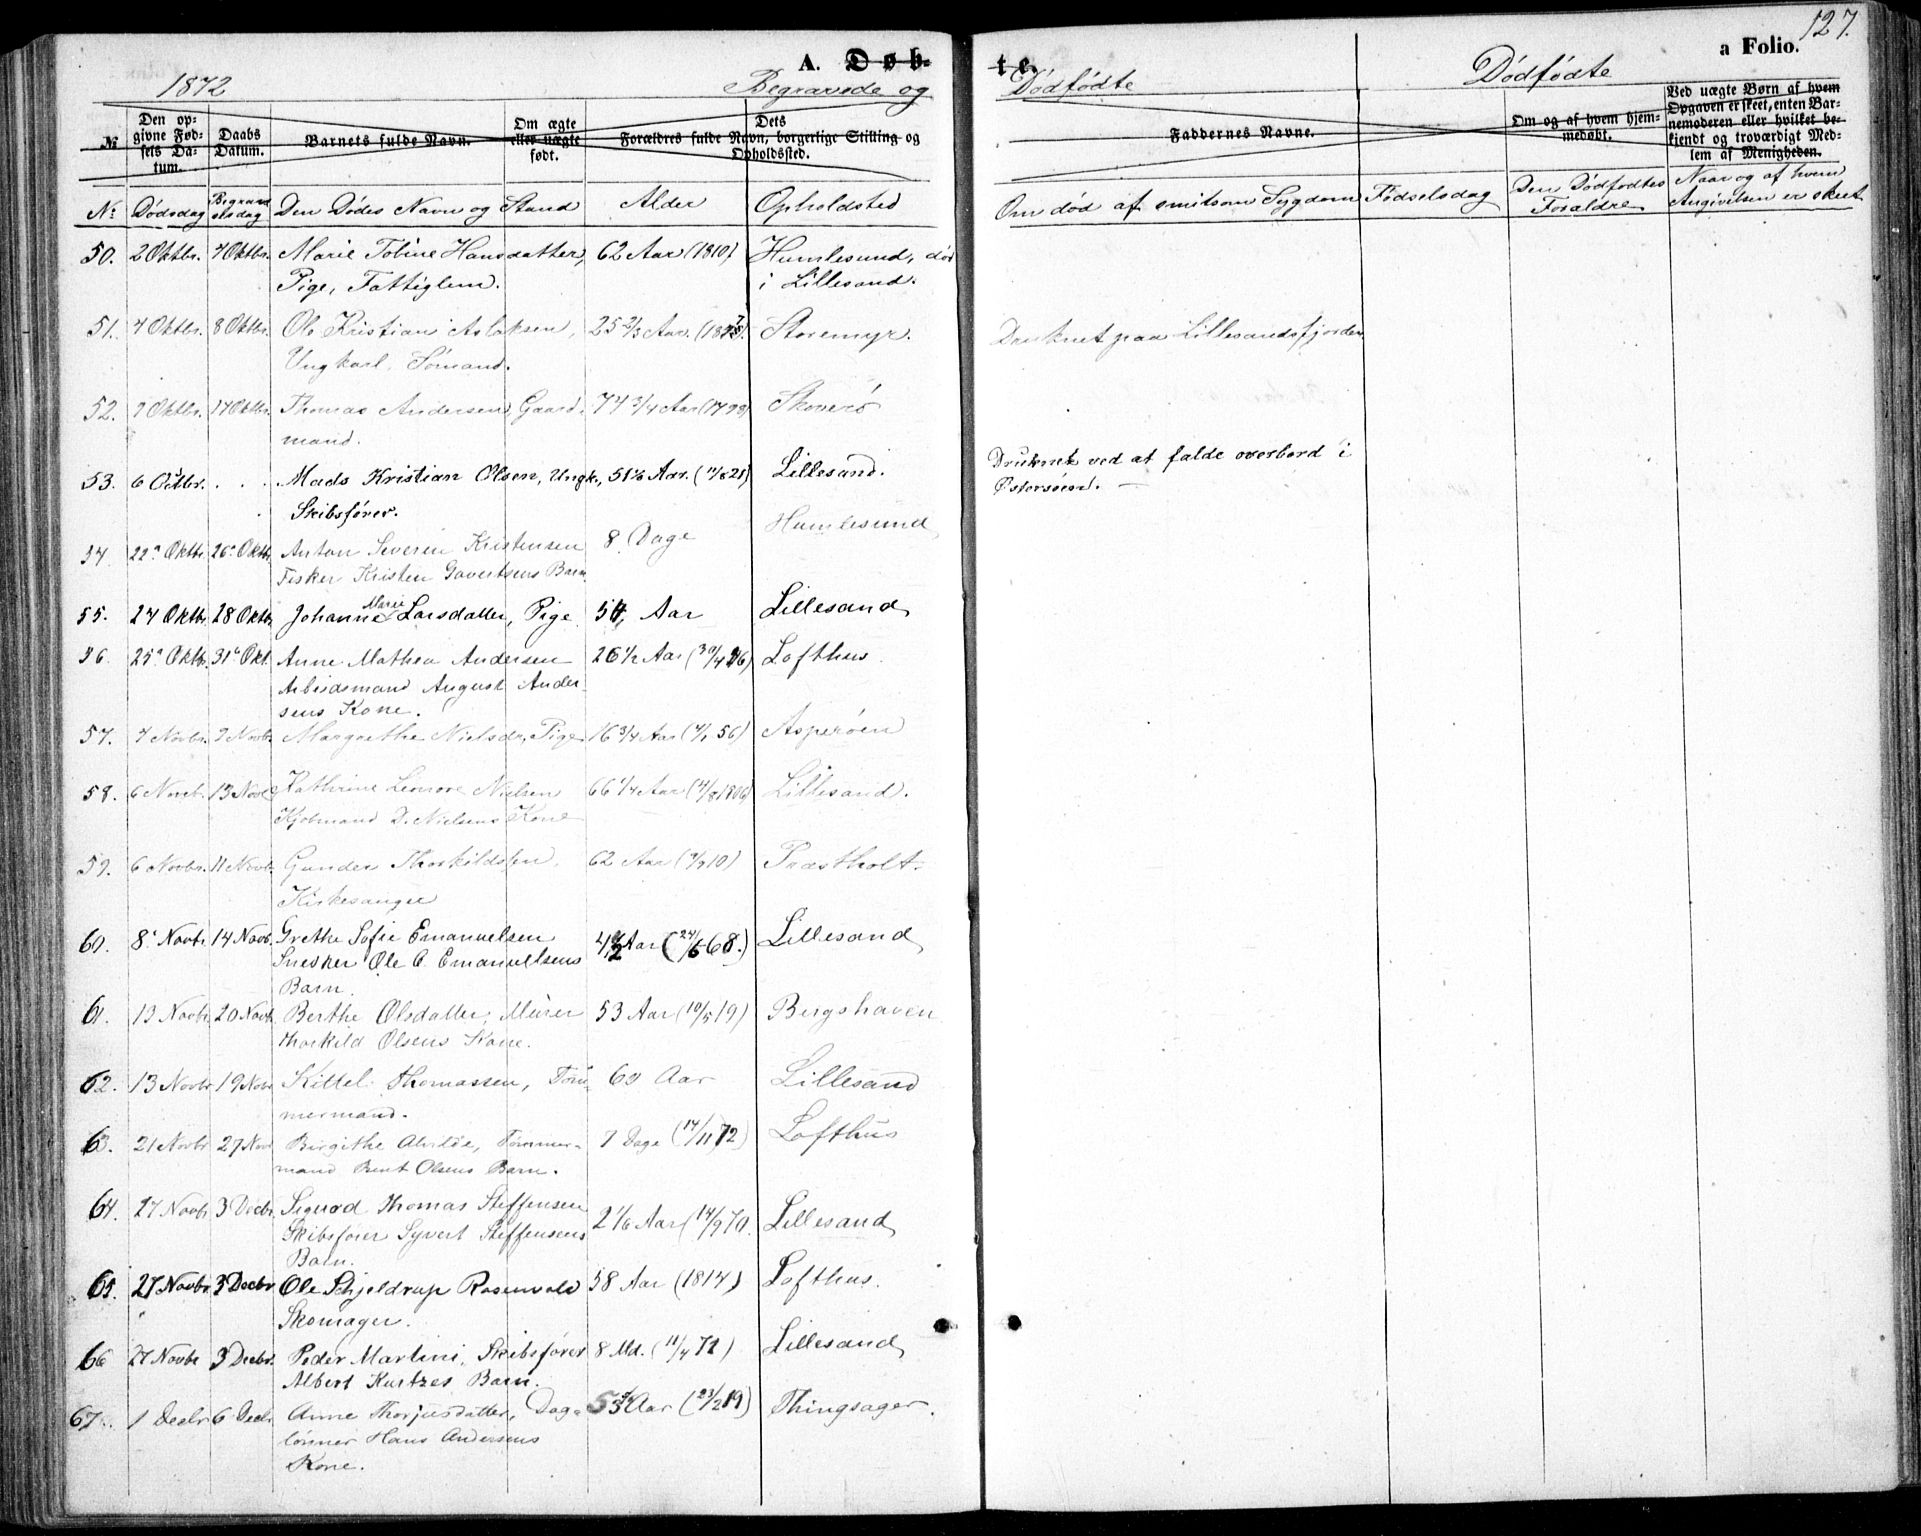 127.
A. Døbte. a Folio.
1872 Begravede og Dødfødte Dødfødte
№ Den opgivne Fødsels Datum. Daabs Datum. Barnets fulde Navn. Om ægte eller uægte født. Forældres fulde Navn, borgerlige Stilling og Opholdssted. Faddernes Navne. Om og af hvem hjemmedøbt. Ved uægte Børn af hvem Opgaven er skeet, enten Barnemoderen eller hvilket bekjendt og troværdigt Medlem af Menigheden.
Dets
№ Dødsdag Begravelsesdag Den Dødes Navn og Stand Alder Opholdsted Om død af smitsom Sygdom Fødselsdag Den Dødfødtes Forældre Naar og af hvem Angivelsen er skeet
50. 2 Oktbr. 7 Oktbr. Marie Tobine Hansdatter, 62 Aar (1810) Humlesund, død
Pige, Fattiglem. i Lillesand.
51. 4 Oktbr. 8 Oktbr. Ole Kristian Aslaksen, 25 2/3 Aar. Storemyr. Druknet paa Lillesandsfjorden
Ungkarl, Sømand.
52. 9 Oktbr. 17 Oktbr. Thomas Andersen, Gaard- 74 3/4 Aar (1798)
mand.
53. 6 Octbr. . . Mads Kristian Olsen, Ungk., 51 1/6 Aar. (11/8 21) Lillesand. Druknet ved at falde overbord i
Skibsfører. Østersøen. —
54 22de Oktbr. 26de Oktbr. Anton Severin Kristensen 8 Dage Humlesund
Fisker Kristen Govertsens Barn
55. 24 Oktbr. 28 Oktbr. Johanne Marie Larsdatter, Pige 54 Aar Lillesand
56 25de Oktbr. 31te Okt. Anne Mathea Andersen 26 1/2 Aar (30/4 46) Lofthus
Arbeidsmand August Ander-
sens Kone.
57. 4 Novbr. 9 Novbr. Margrethe Nielsdr, Pige 16 3/4 Aar (4/1 56) Asperøen
58. 6 Novb. 13 Novb Kathrine Leonore Nielsen 66 1/4 Aar (4/8 1806) Lillesand.
Kjøbmand D. Nielsens Kone
59. 6 Novbr. 11 Novb. Gunder Thorkildsen, 62 Aar (9/9 10) Præstholt.
Kirkesanger
60. 8de Novbr. 14 Novb. Grethe Sofie Emanuelsen 4 1/2 Aar (24/5 68.) Lillesand
Snedker Ole C. Emanuelsens
Barn.
61. 13 Novbr. 20 Novb. Berthe Olsdatter, Murer 53 Aar (10/5 19) Bergshaven
Thorkild Olsens Kone.
62. 13 Novbr 19 Nov Kittel Thomassen, Tøm- 60 Aar Lillesand
mermand.
63. 21 Novbr 27 Nov Birgithe Amalie, Tømmer- 7 Dage (14/11 72) Lofthus
mand Bent Olsens Barn.
64. 27 Novbr 3 Decbr. Sigurd Thomas Steffensen 2 1/6 Aar (14/9 70. Lillesand
Skibsfører Syvert Steffensens
Barn.
65. 27 Novbr 3 Decbr Ole Schjeldrup Rosenvold 58 Aar (1814) Lofthus.
Skomager.
66 27 Novbr 3 Decbr. Peder Martini, Skibsfører 8 Md. (11/4 72) Lillesand
Albert Kurtzes Barn.
67. 1 Decbr 6 Decbr Anne Thorjusdatter, Dag- 53 3/4 Aar (23/2 19) Thingsager.
lønner Hans Andersens
Kone.